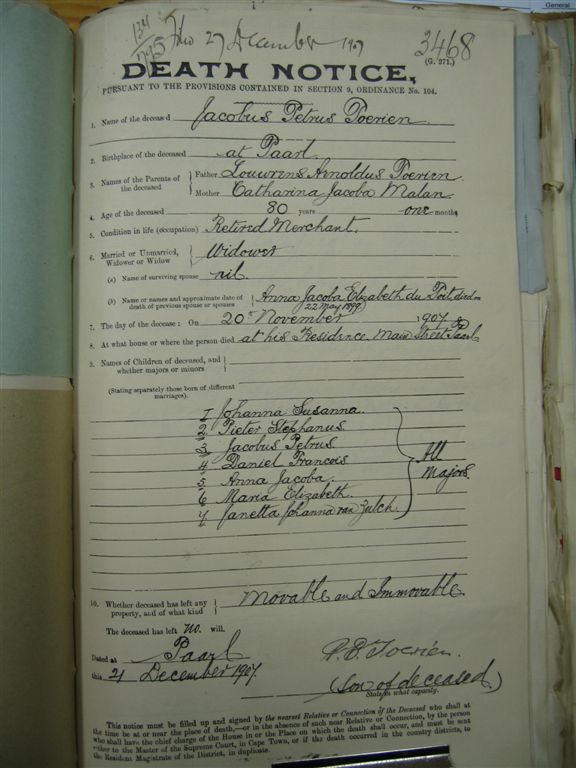 General
134
795
27 December 1907
3468
(G. 271.)
DEATH NOTICE,
PURSUANT TO THE PROVISIONS CONTAINED IN SECTION 9, ORDINANCE No. 104.
1. Name of the deceased Jacobus Petrus Toerien
2. Birthplace of the deceased at Paarl.
3. Names of the Parents of the deceased { Father Louwrens Arnoldus Toerien
Mother Catharina Jacoba Malan.
4. Age of the deceased 80 years one months
5. Condition in life (occupation) Retired Merchant.
6. Married or Unmarried, Widower or Widow } Widower
(a) Name of surviving spouse nil.
(b) Name or names and approximate date of death of previous spouse or spouses { Anna Jacoba Elizabeth du Toit, died on
22 May 1899)
7. The day of the decease: On 20th November 1907.
8. At what house or where the person died at his Residence, Main Street Paarl
9. Names of Children of deceased, and whether majors or minors }
(Stating separately those born of different marriages).
1 Johanna Susanna.
2. Pieter Stephanus
3. Jacobus Petrus
4 Daniel Francois
5 Anna Jacoba.
6 Maria Elizabeth.
7 Janetta Johanna van Zulch.
} All Majors.
10. Whether deceased has left any property, and of what kind } Movable and Immovable.
The deceased has left no. will.
Dated at Paarl
this 21 December 1907.
Toerien.
(Son of deceased.)
State in what capacity.
This notice must be filled up and signed by the nearest Relative or Connection of the Deceased who shall at
the time be at or near the place of death,—or in the absence of such near Relative or Connection, by the person
who shall have the chief charge of the House in or the Place on which the death shall occur, and must be sent
either to the Master of the Supreme Court, in Cape Town, or if the death occurred in the country districts, to
the Resident Magistrate of the District, in duplicate.